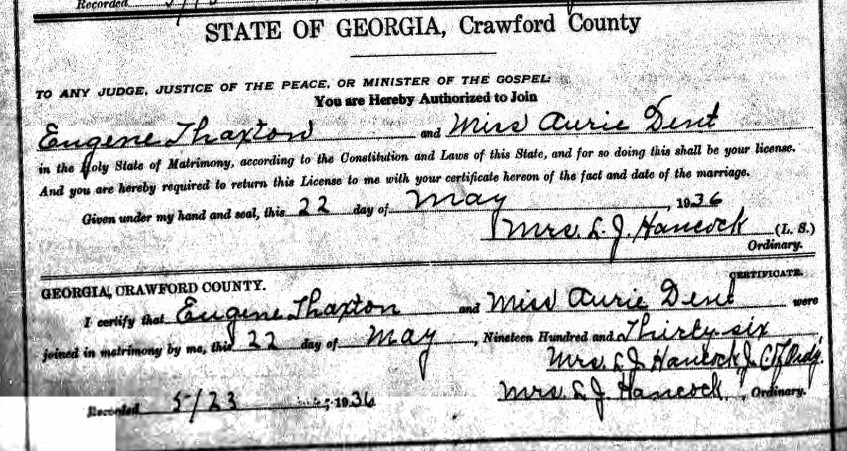 Recorded
STATE OF GEORGIA, Crawford County
TO ANY JUDGE, JUSTICE OF THE PEACE, OR MINISTER OF THE GOSPEL:
You are Hereby Authorized to Join
Eugene Thaxton and Miss Aurie Dent
in the Holy State of Matrimony, according to the Constitution and Laws of this State, and for so doing this shall be your license.
And you are hereby required to return this License to me with your certificate hereon of the fact and date of the marriage.
Given under my hand and seal, this 22 day of May, 1936
Mrs. L. J. Hancock (L. S.)
Ordinary.
CERTIFICATE.
GEORGIA, CRAWFORD COUNTY.
I certify that Eugene Thaxton and Miss Aurie Dent were
joined in matrimony by me, this 22 day of May, Nineteen Hundred and Thirty six
Mrs. L. J. Hancock
Recorded 5/23 1936 Mrs. L. J. Hancock, Ordinary.